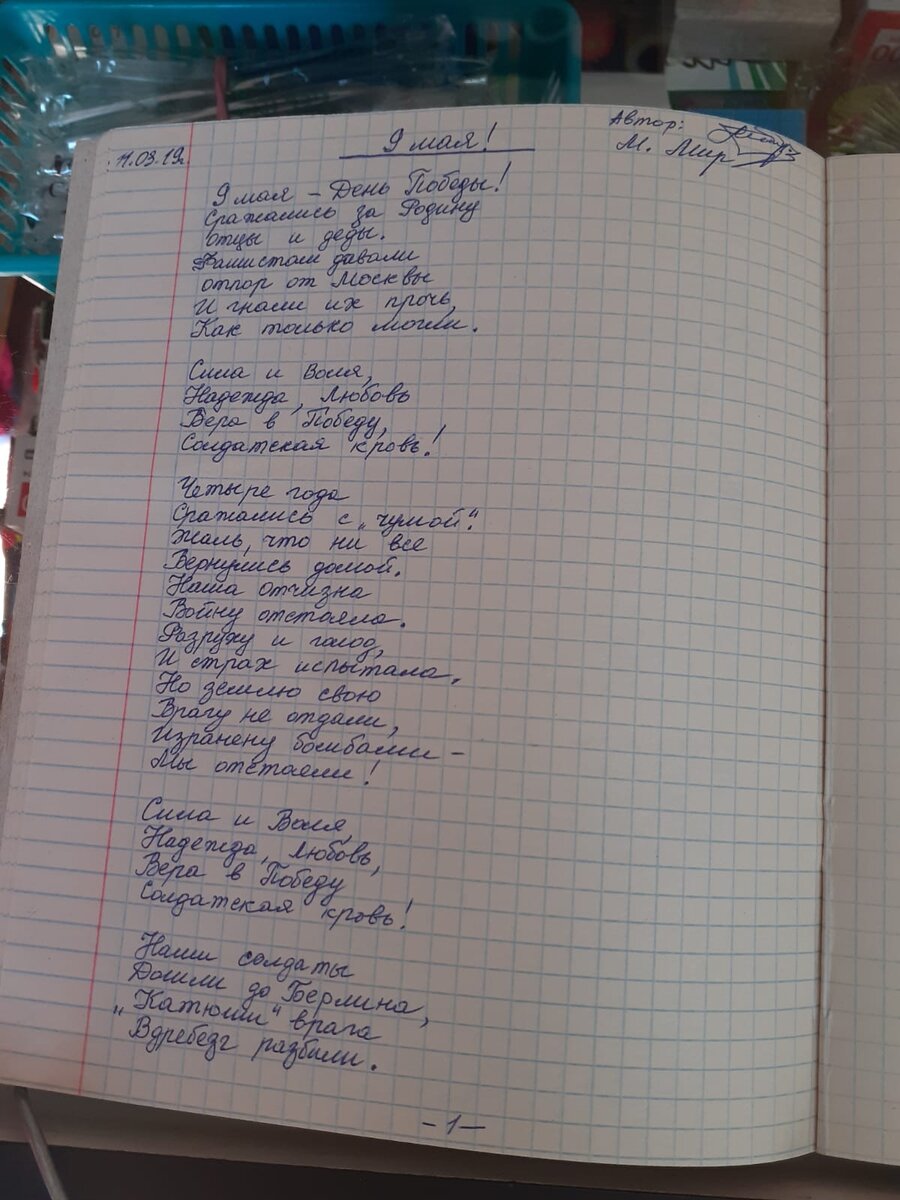 11.03.19г.
9 мая!
Автор:
М. Мир
9 мая – День Победы!
Сражались за Родину
отцы и деды.
Фашистам давали
отпор от Москвы
И гнали их прочь,
Как только могли.
Сила и Воля,
Надежда, Любовь
Вера в Победу,
Солдатская кровь!
Четыре года
Сражались с „чумой“.
Жаль, что ни все
Вернулись домой.
Наша отчизна
Войну отстояла.
Разруху и голод,
И страх испытала.
Но землю свою
Врагу не отдали,
Изранену бомбами –
Мы отстояли!
Сила и Воля,
Надежда, Любовь,
Вера в Победу
Солдатская кровь!
Наши солдаты
Дошли до Берлина,
„Катюши“ врага
Вдребезг разбили.
– 1 –